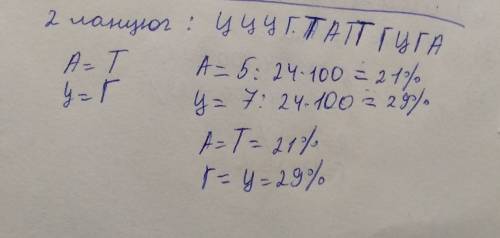 2 ланцюг : Ц Ц Ц Г Т А Т Т Г Ц Г А
А = Т А = 5 : 24 · 100 = 21%
Ц = Г Ц = 7 : 24 · 100 = 29%
А = Т = 21%
Г = Ц = 29%